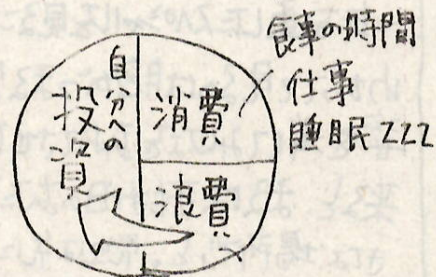 自分への
投資
消費
浪費
食事の時間
仕事
睡眠ZZZ